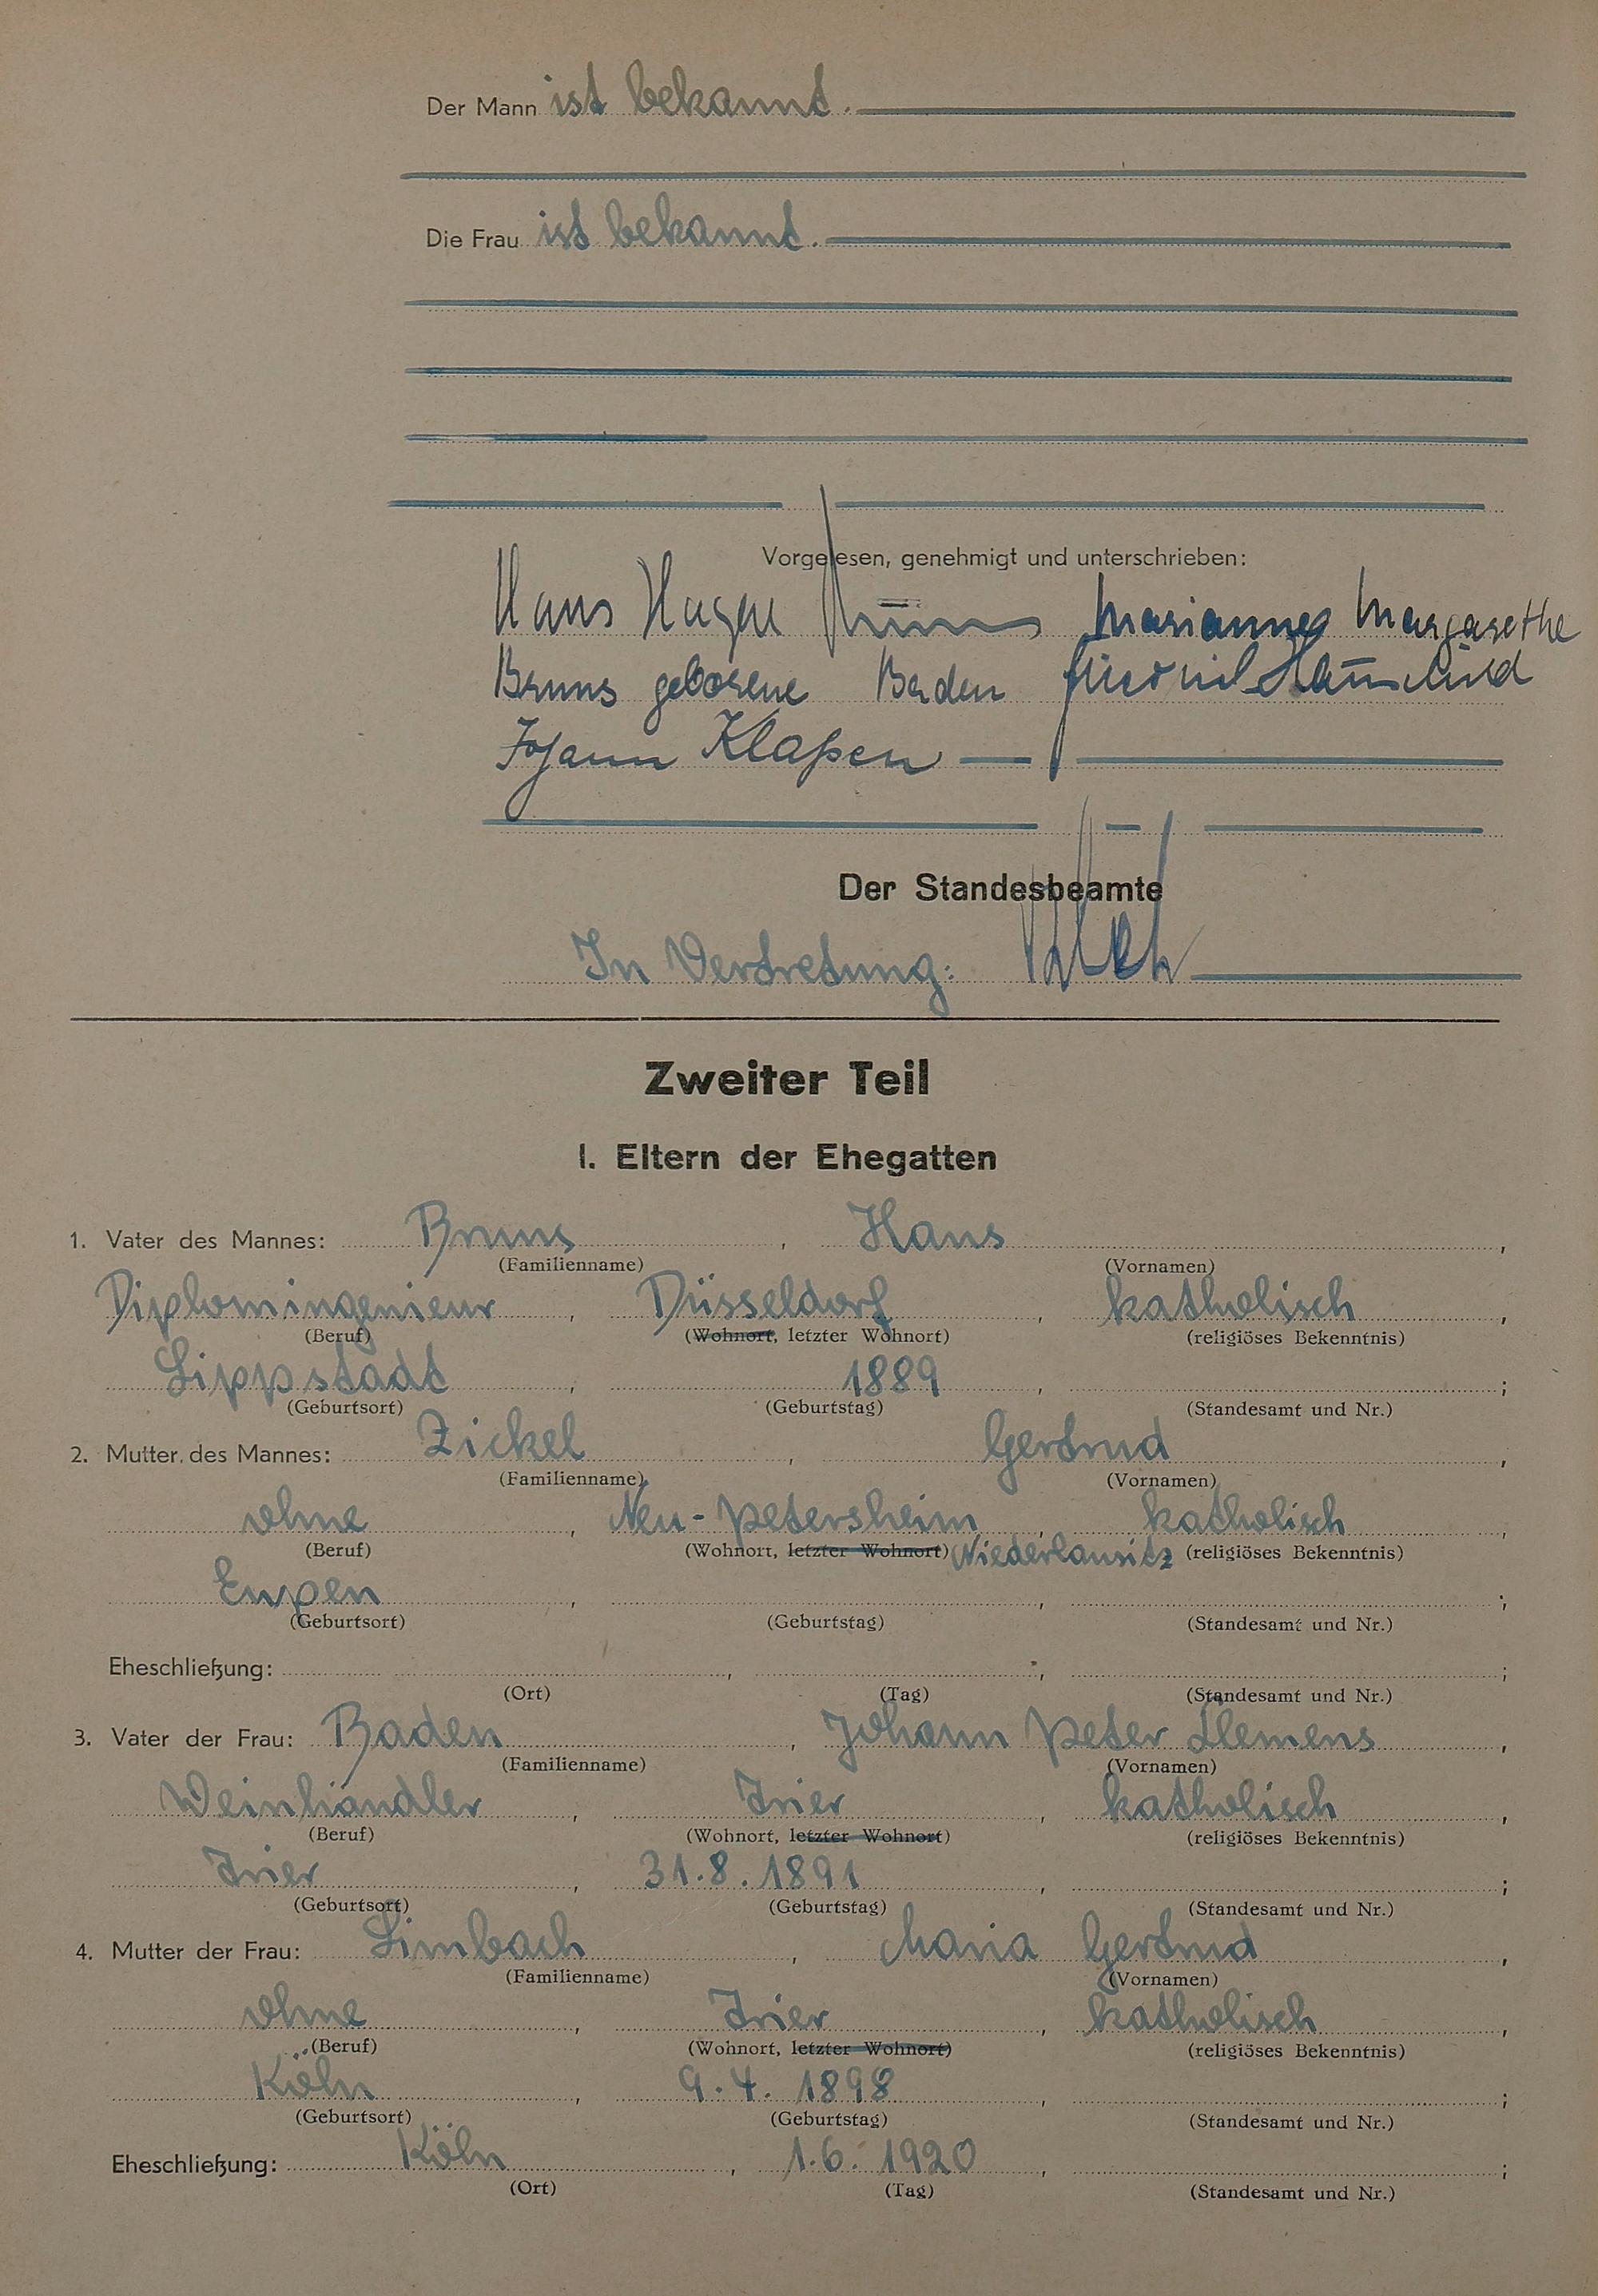 Der Mann ist bekannt.
Die Frau ist bekannt.
Vorgelesen, genehmigt und unterschrieben:
Hans Hagen Bruns Marianne Margarethe
Bruns geborene Baden
Johann Klaßen
Der Standesbeamte
In Vertretung:
Zweiter Teil
I. Eltern der Ehegatten
1. Vater des Mannes: Bruns, Hans,
(Familienname) (Vornamen)
Diplomingenieur, Düsseldorf, katholisch,
(Beruf) (Wohnort, letzter Wohnort) (religiöses Bekenntnis)
Lippstadt, 1889, ;
(Geburtsort) (Geburtstag) (Standesamt und Nr.)
2. Mutter des Mannes: Zickel, Gertrud,
(Familienname) (Vornamen)
ohne, Neu-Petersheim, katholisch,
(Beruf) (Wohnort, letzter Wohnort) Niederlausitz (religiöses Bekenntnis)
Eupen, , ;
(Geburtsort) (Geburtstag) (Standesamt und Nr.)
Eheschließung: , , ;
(Ort) (Tag) (Standesamt und Nr.)
3. Vater der Frau: Baden, Johann Peter Klemens,
(Familienname) (Vornamen)
Weinhändler, Trier, katholisch,
(Beruf) (Wohnort, letzter Wohnort) (religiöses Bekenntnis)
Trier, 31.8.1891, ;
(Geburtsort) (Geburtstag) (Standesamt und Nr.)
4. Mutter der Frau: Limbach, Maria Gertrud,
(Familienname) (Vornamen)
ohne, Trier, katholisch,
(Beruf) (Wohnort, letzter Wohnort) (religiöses Bekenntnis)
Köln, 9.4.1898, ;
(Geburtsort) (Geburtstag) (Standesamt und Nr.)
Eheschließung: Köln, 1.6.1920, ;
(Ort) (Tag) (Standesamt und Nr.)